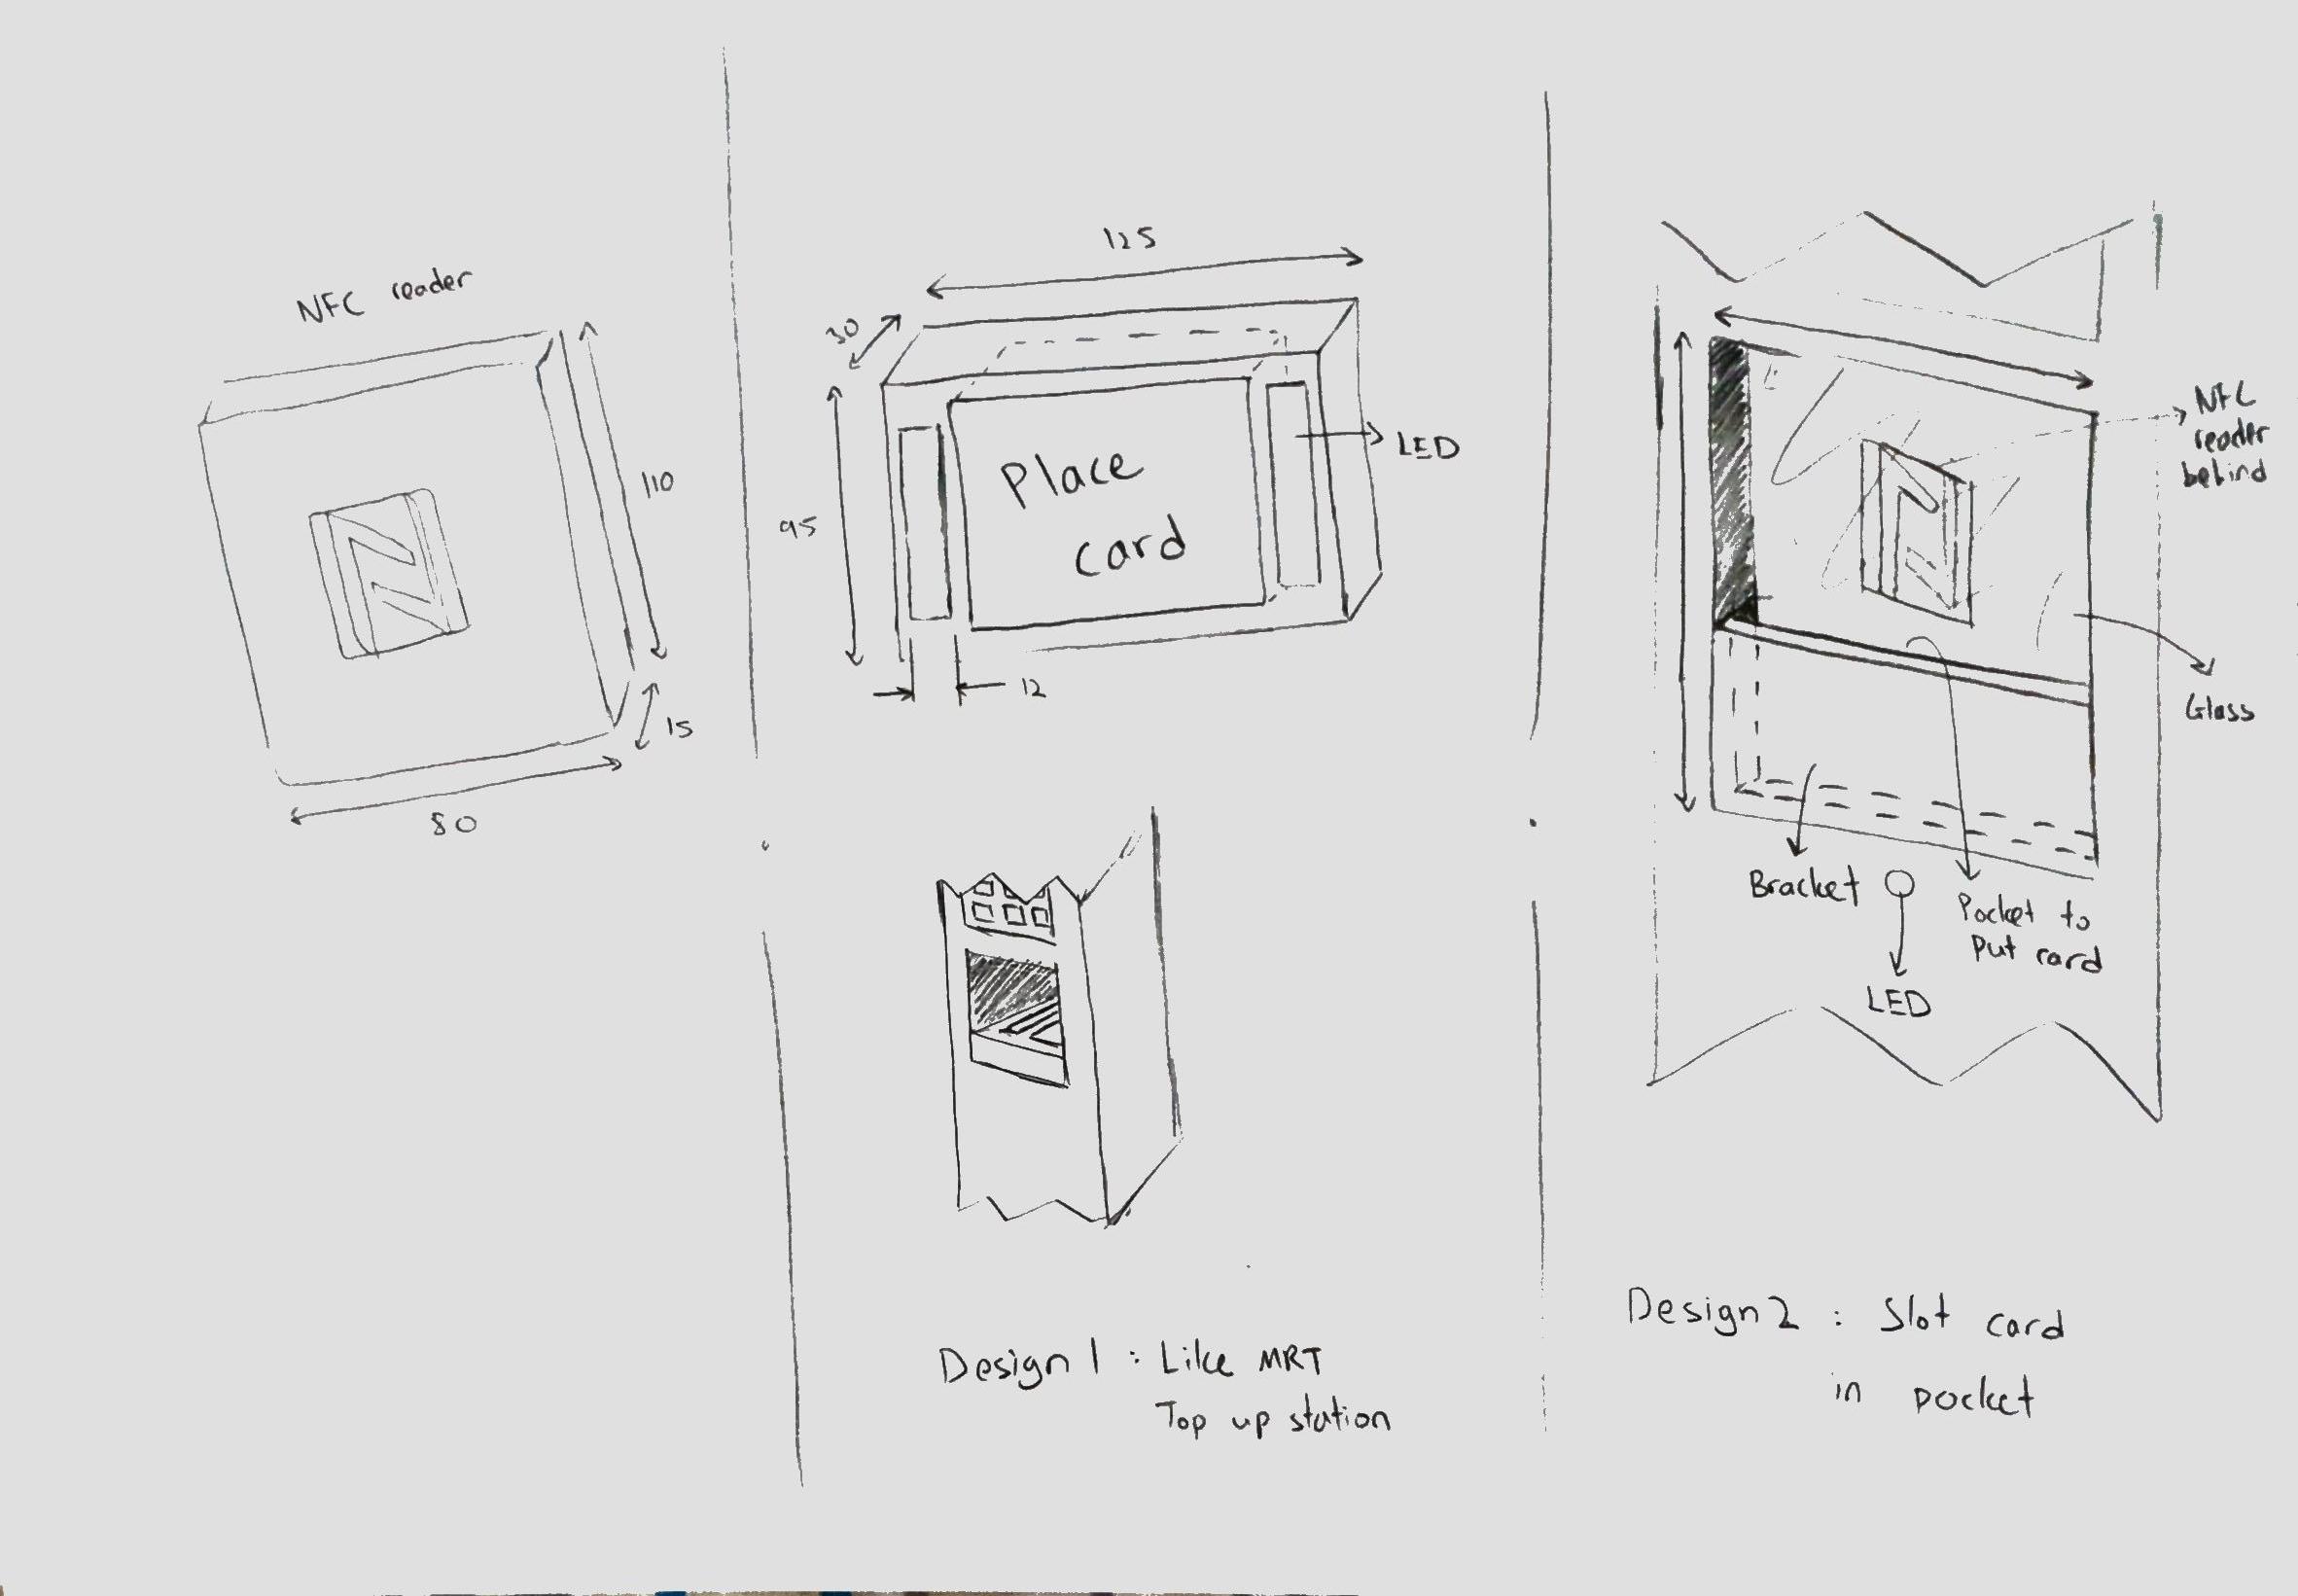 NFC reader
110
15
80
125
30
95
Place
card
LED
12
Design 1 : Like MRT
Top up station
NFC
reader
behind
Glass
Bracket
Pocket to
Put card
LED
Design 2 : Slot card
in pocket